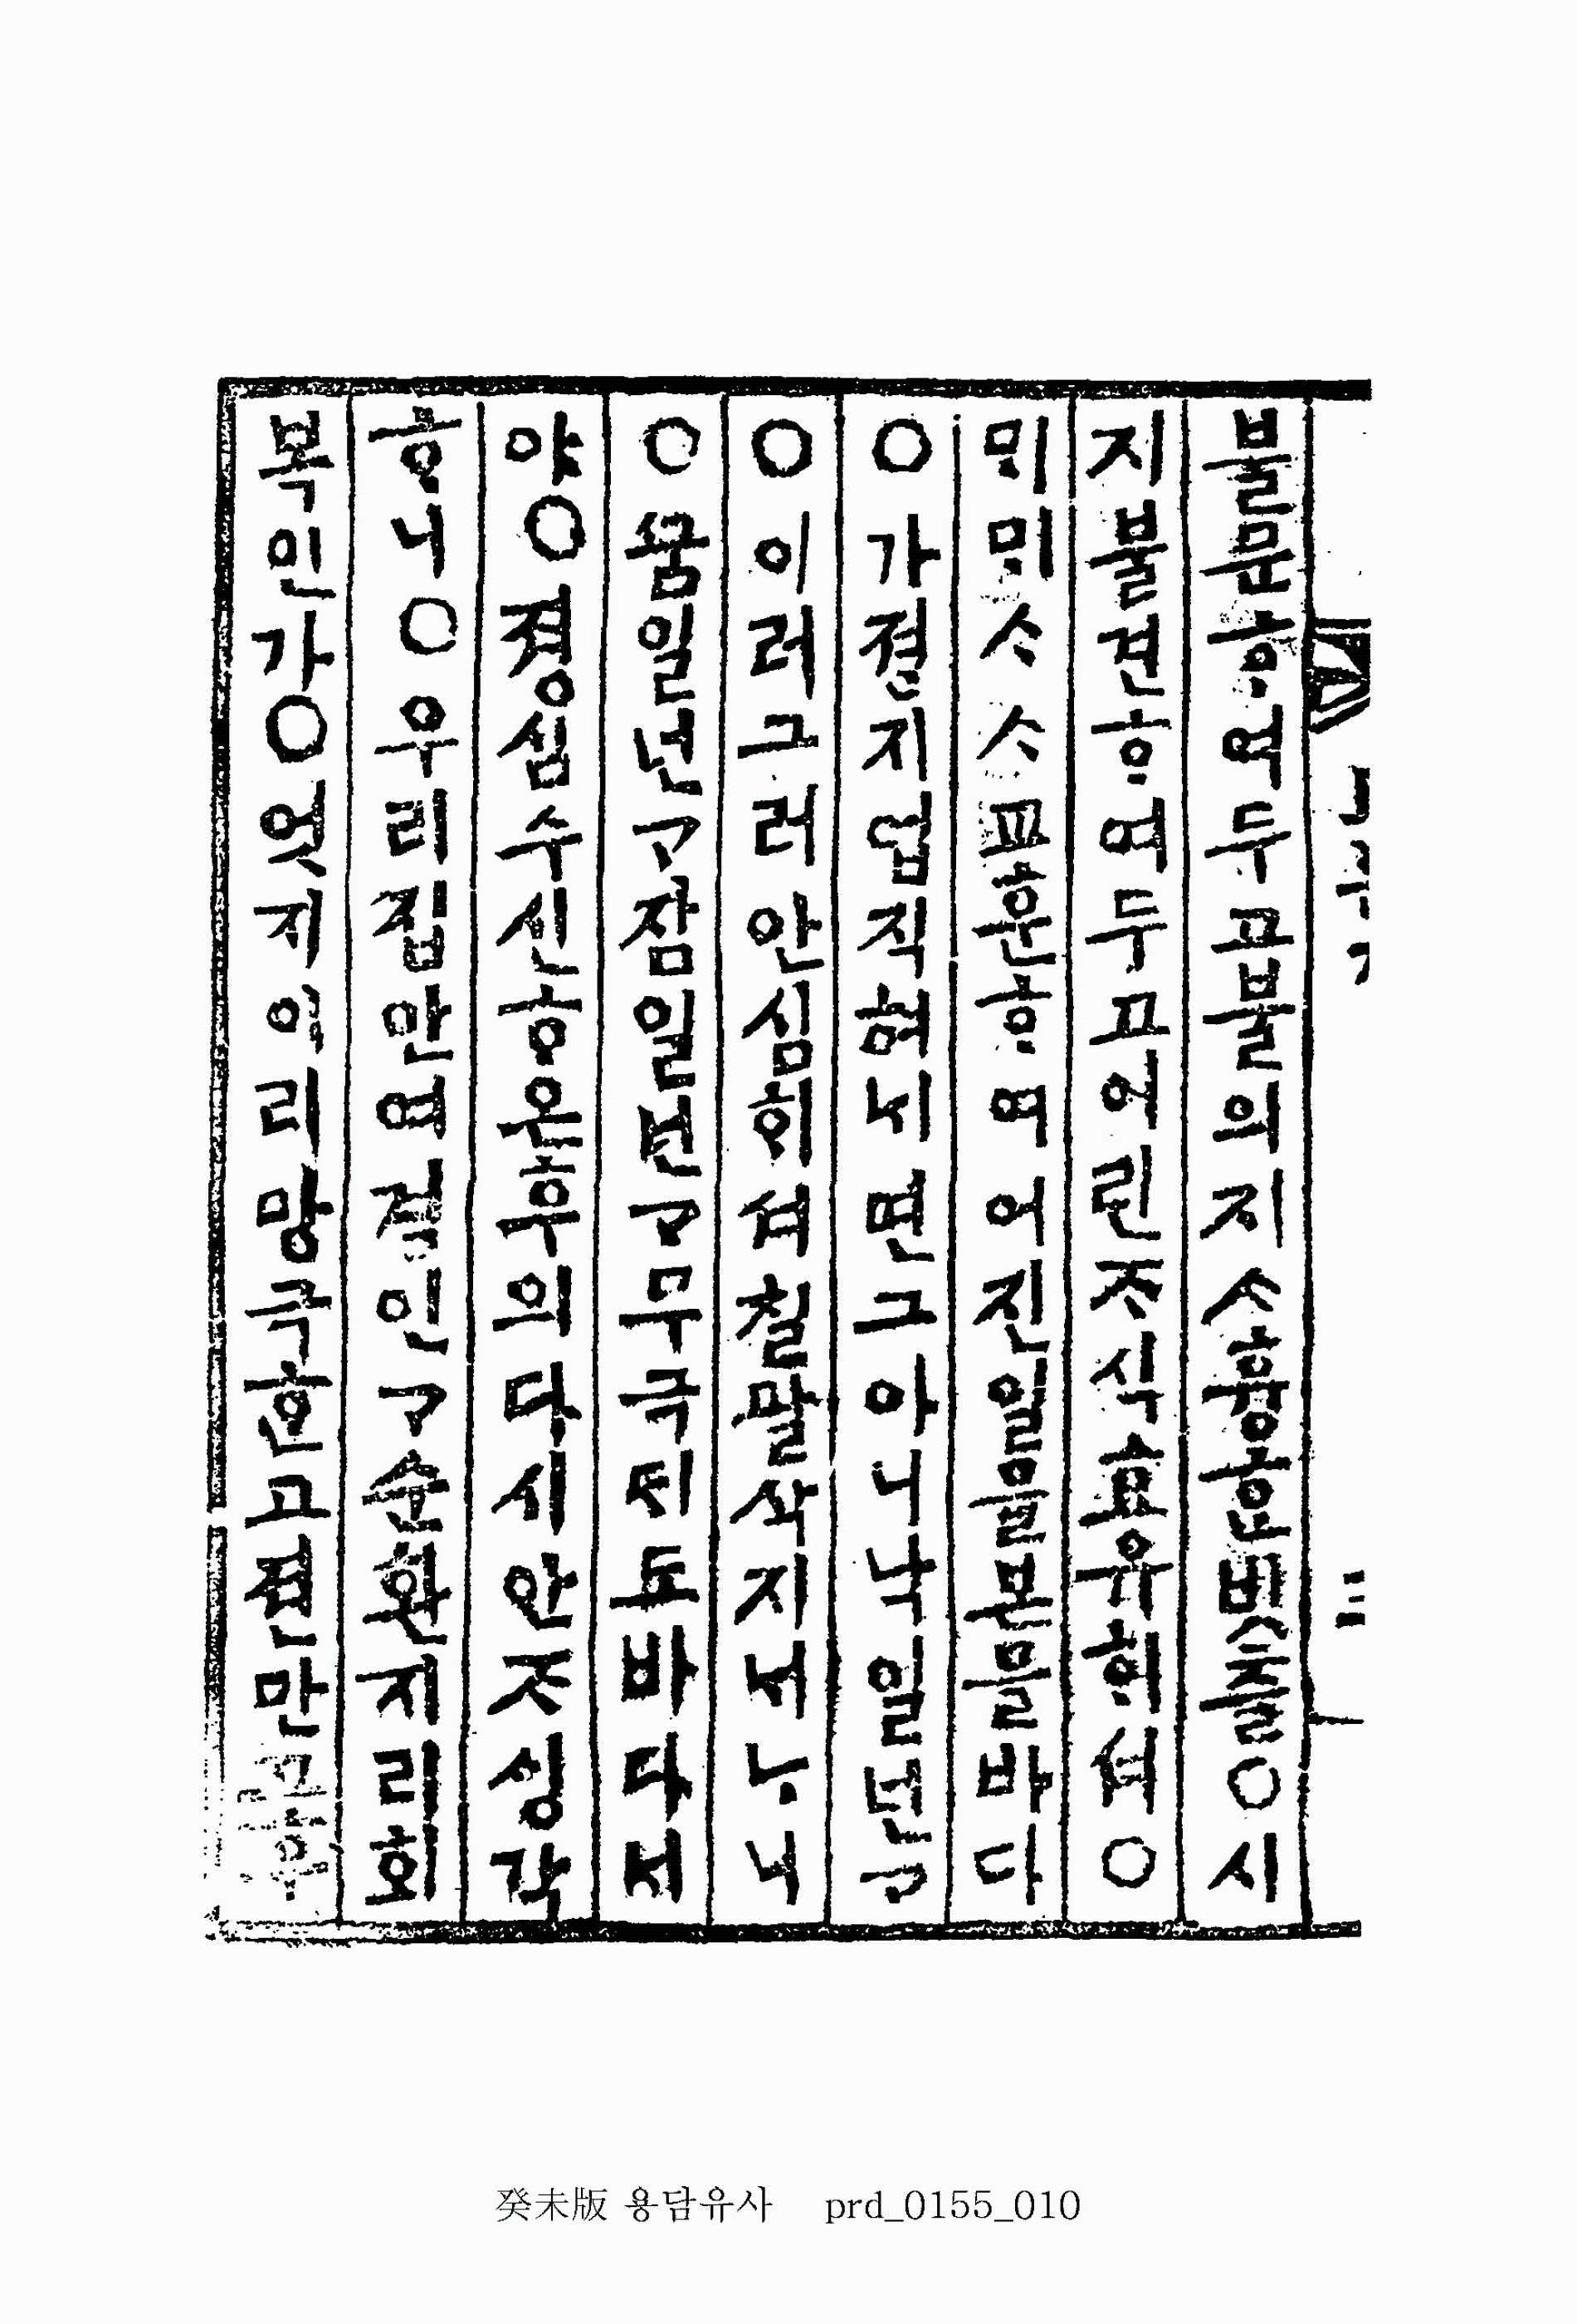 불문ᄒᆞ여두고불의지ᄉᆞ흉ᄒᆞᆫ빗츨○시
지불견ᄒᆞ여두고어린ᄌᆞ식효유ᄒᆡ셔○
ᄆᆡᄆᆡᄉᆞᄉᆞ교훈ᄒᆞ며어진일을본을바다
○가졍지업직혀ᄂᆡ면그아니낙일넌고
○이러그러안심ᄒᆡ셔칠팔삭지ᄂᆡ더니
○ᄭᅮᆷ일넌ᄀᆞ잠일넌ᄀᆞ무극ᄃᆡ도바다ᄂᆡ
야○졍심수신ᄒᆞ온후의다시안ᄌᆞᄉᆡᆼ각
ᄒᆞ니○우리집안여경인ᄀᆞ순환지리회
복인가○엇지이리망극ᄒᆞᆫ고젼만고후
癸未版 용담유사 prd_0155_010